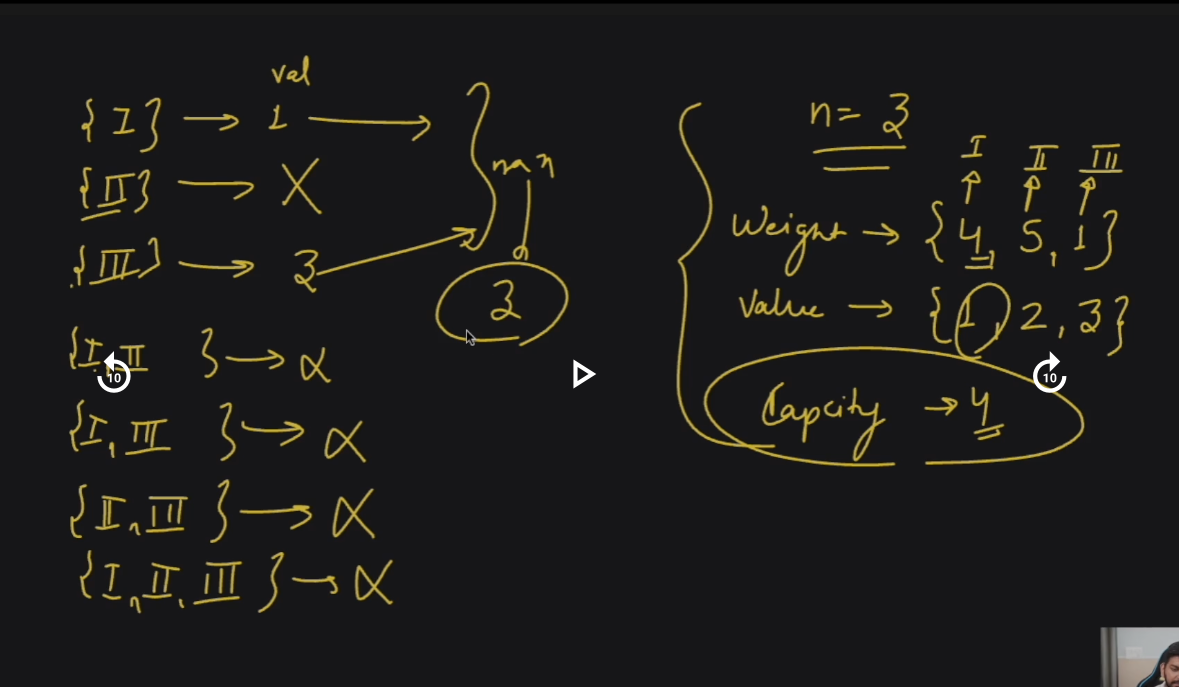 val
{I} → 1 →
{II} → X
{III} → 3 →
max
3
{I, II } → X
{I, III } → X
{II, III } → X
{I, II, III } → X
n= 3
I II III
Weight → {4, 5, 1}
Value → {1, 2, 3}
Capcity → 4
10
10